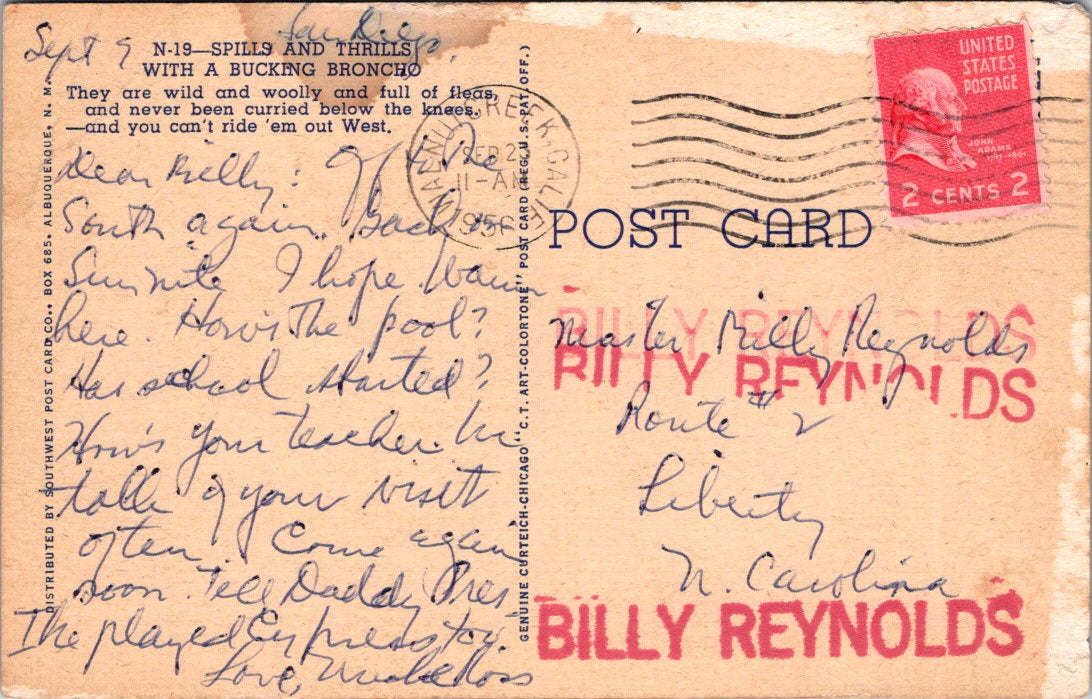 Sept 9 San Diego
N-19—SPILLS AND THRILLS
WITH A BUCKING BRONCHO
They are wild and woolly and full of fleas,
and never been curried below the knees.
—and you can't ride 'em out West.
Dear Billy: Off to the
South again. Back on
Sun nite I hope. Warm
here. How's the pool?
Has school started?
How's your teacher. We
talk of your visit
often. Come again
soon. Tell Daddy Pres.
Ike played Cypress too.
Love, Uncle Ross
DISTRIBUTED BY SOUTHWEST POST CARD CO., BOX 685, ALBUQUERQUE, N. M.
GENUINE CURTEICH-CHICAGO "C.T. ART-COLORTONE" POST CARD (REG. U.S. PAT. OFF.)
WALNUT CREEK, CALIF.
SEP 2
11-AM
1956
UNITED
STATES
POSTAGE
JOHN
ADAMS
1797-1801
2 CENTS 2
POST CARD
BILLY REYNOLDS
Master Billy Reynolds
BILLY REYNOLDS
Route # 2
Liberty
N. Carolina
BILLY REYNOLDS